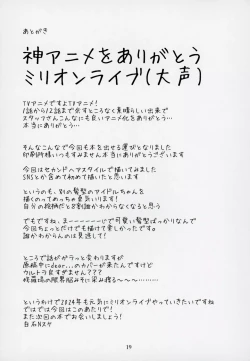 あとがき
神アニメをありがとう
ミリオンライブ(大声)
TVアニメですよTVアニメ!
1話から12話まで余すところなく素晴らしい出来で
スタッフさんこんなにも良いアニメ化をありがとう…
本当にありがとう…
そんなこんなで今回も本を出せる運びとなりました
印刷所様いつもすみません本当にありがとうございます
今回はセカンドヘアスタイルで描いてみました
SNSとか含めて初めて描いたと思います
というのも、別の髪型のアイドルちゃんを
描くのってめっちゃ勇気いります!
自分の絵柄だと割と誰かわからなくなると思う
でもですね、ま〜〜〜じで可愛い髪型ばっかりなんで
今回ちょっとだけでも描けて楽しかったです。
誰かわからんのは見逃して!
ところで話がガラっと変わりますが
原稿中にdear...のカバーが来たんですけど
ウルトラ良すぎません???
修羅場の限界脳みそに染み渡る〜〜〜…
というわけで2024年も元気にミリオンライブやっていきたいですね
では今回はこのあたりで!
また次回の本でお会いしましょう!
白石Nスケ
19